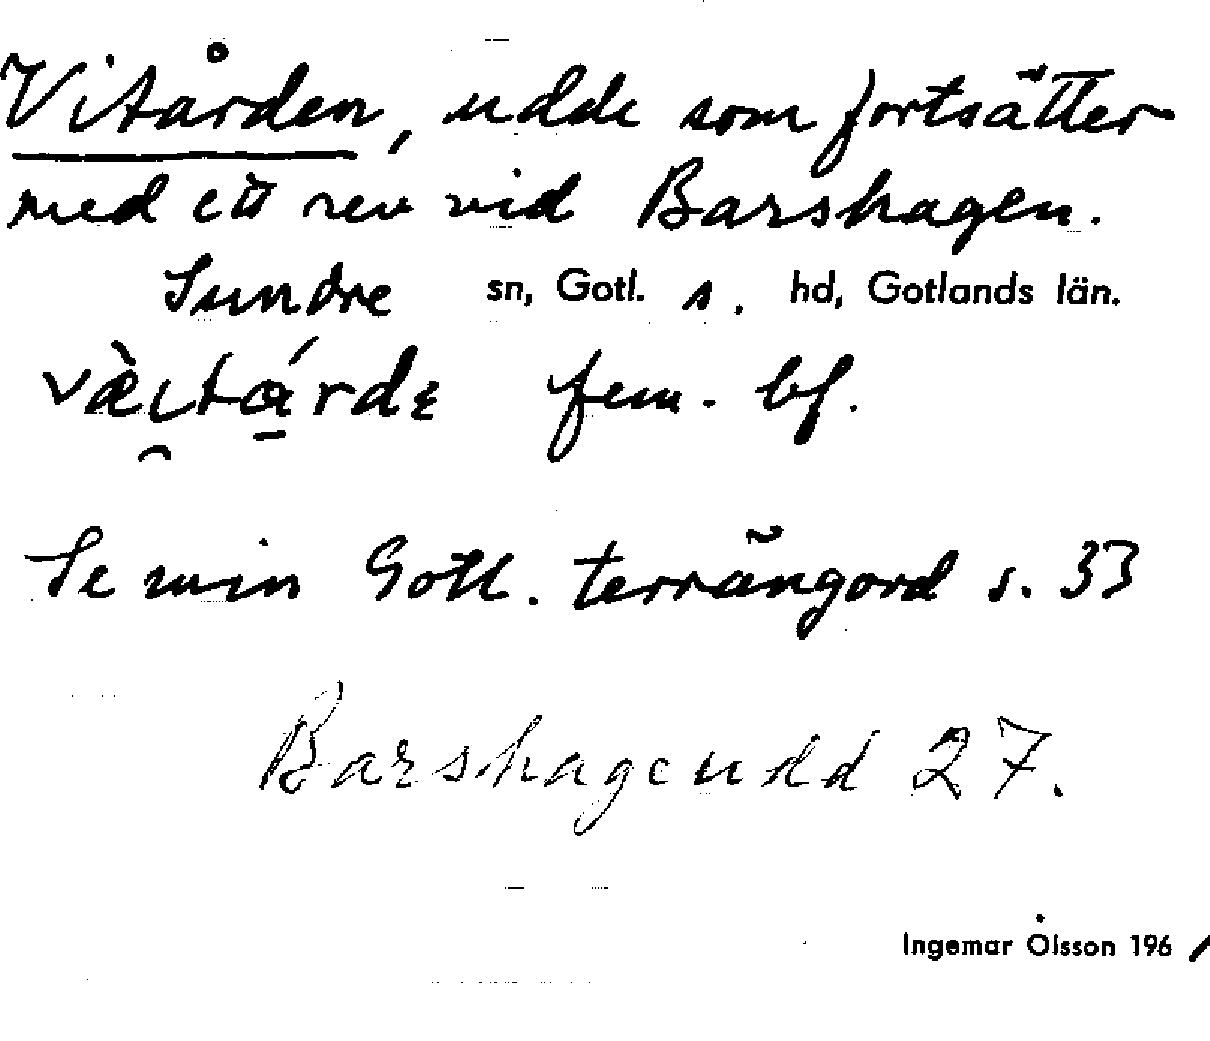 Vitården, udde som fortsätter
med ett rev vid Barshagen.
Sundre sn, Gotl. s. hd, Gotlands län.
væ̀i̯tá̱rdɛ fem. bf.
Se min Gotl. terrängord s. 33
Barshageudd 27.
Ingemar Olsson 1961